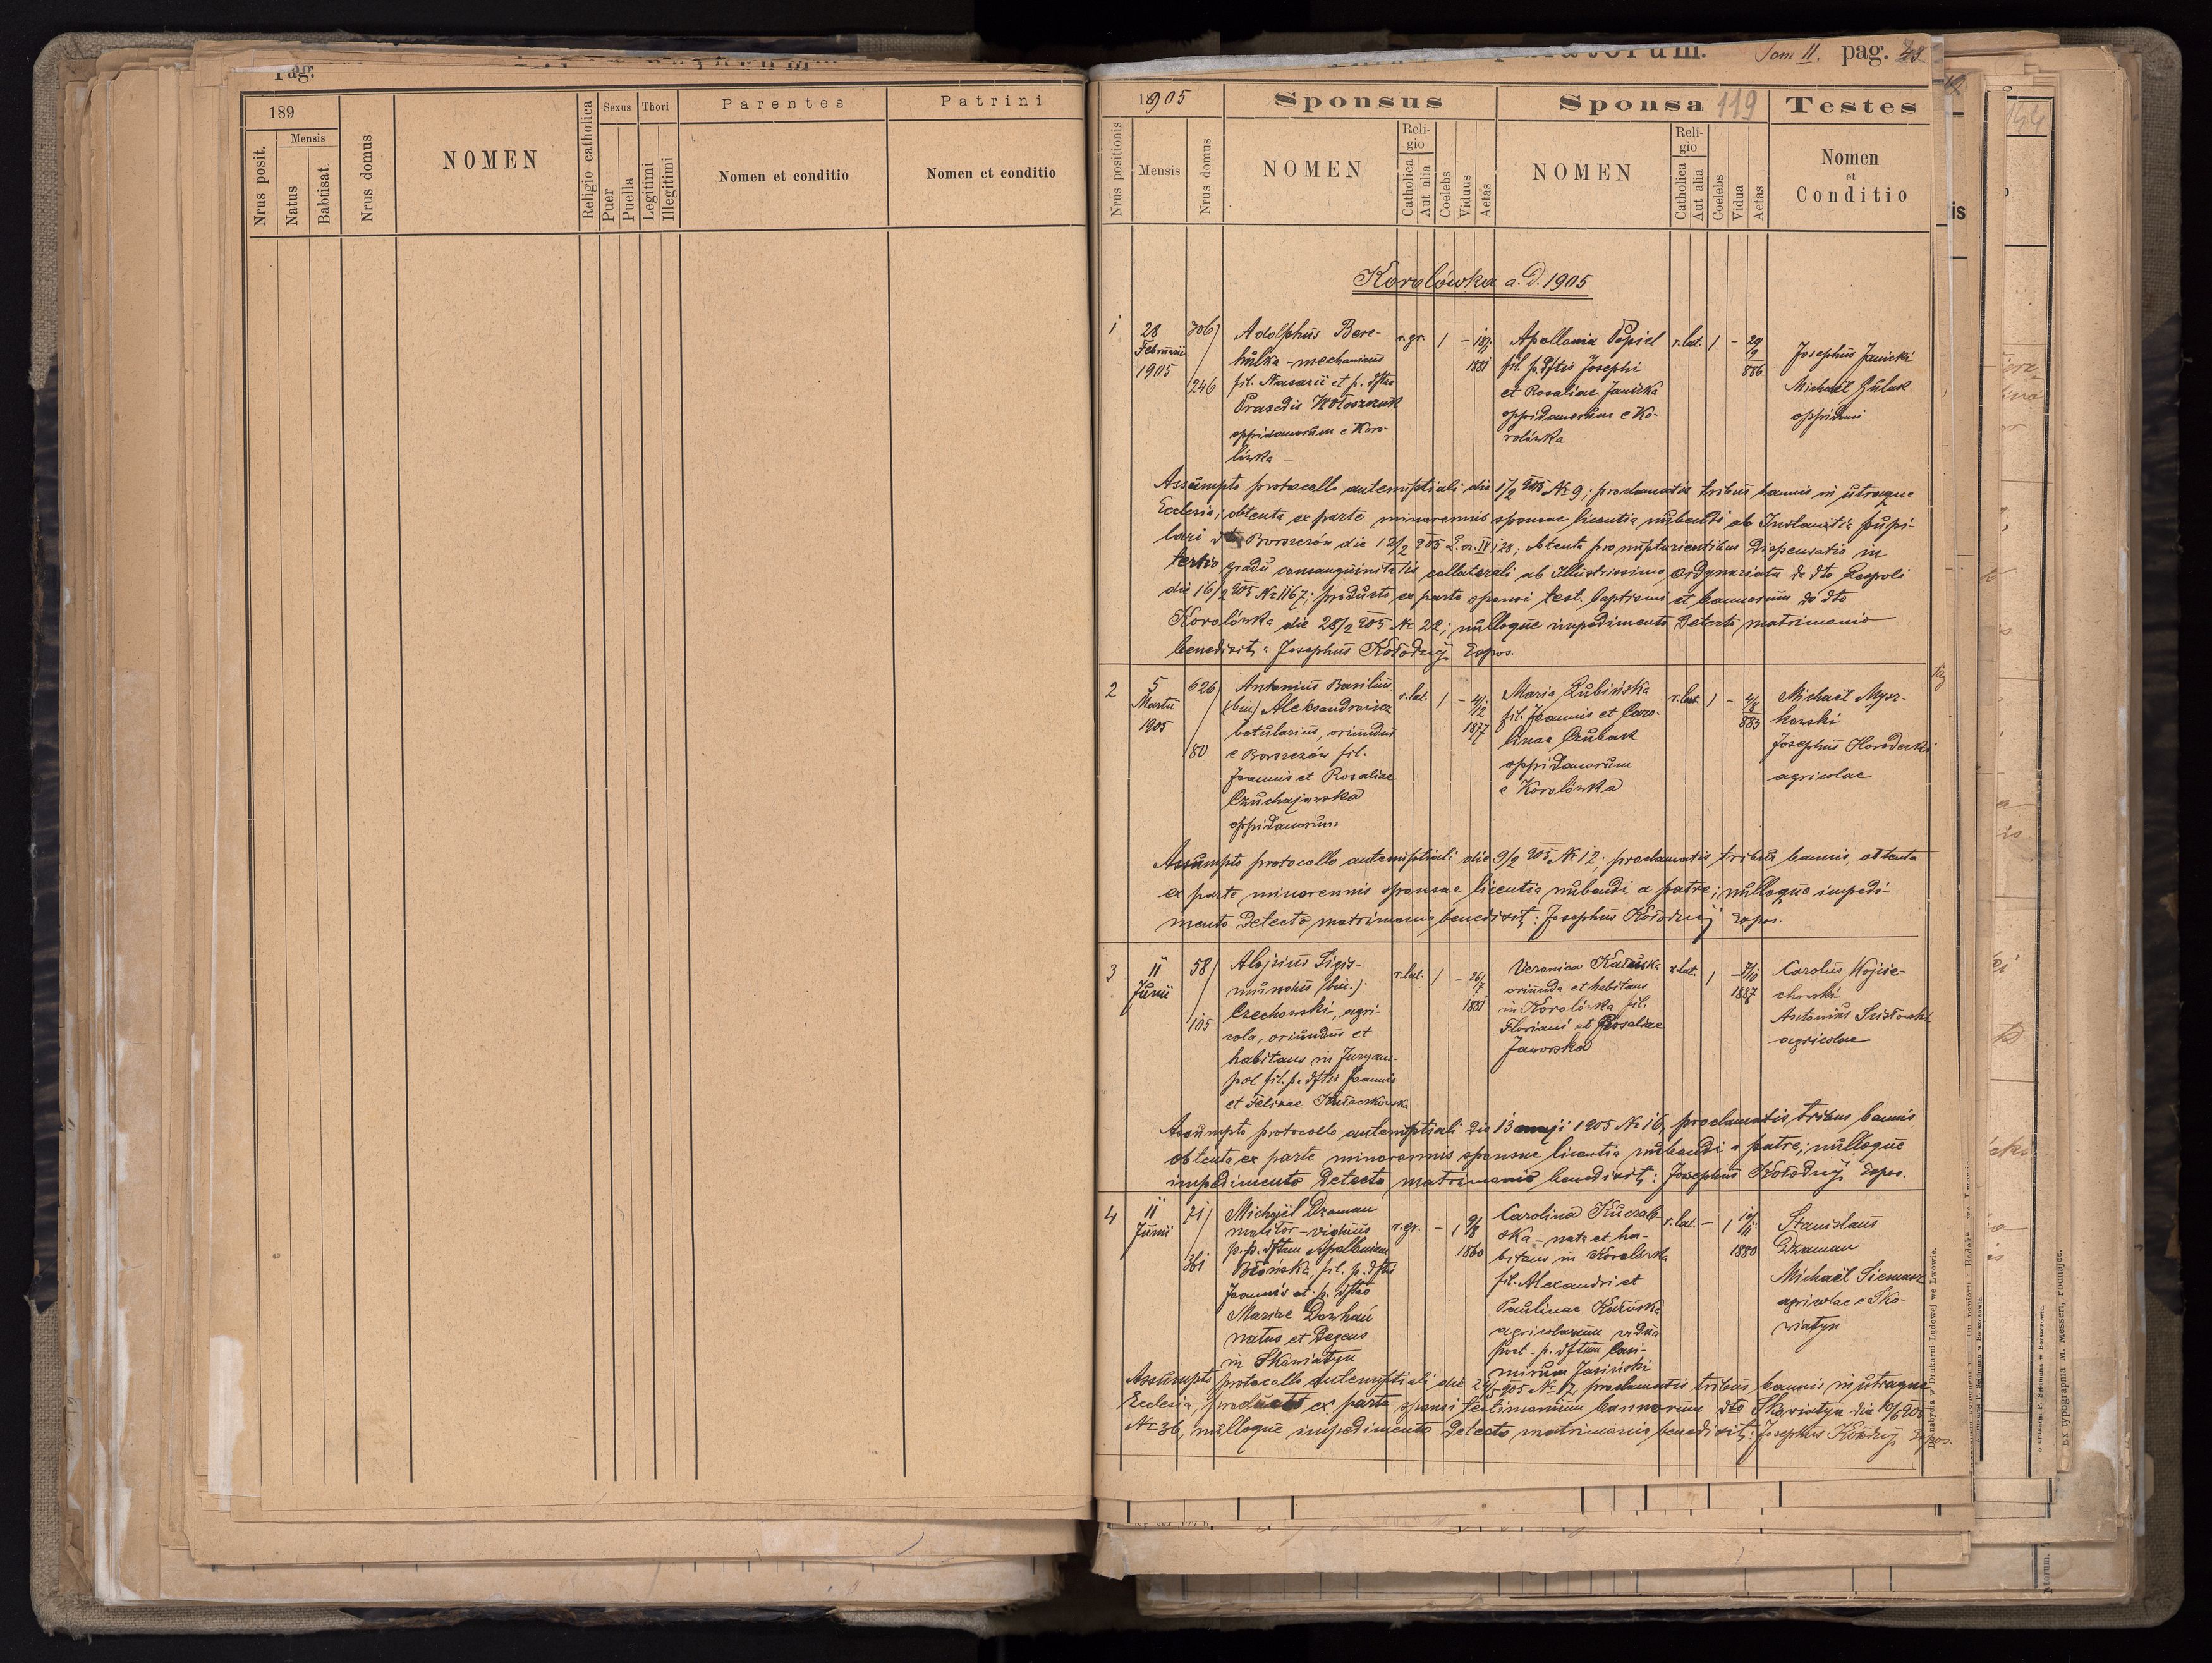 Pag.
189
Nrus posit.
Mensis
Natus
Babtisat.
Nrus domus
NOMEN
Religio catholica
Sexus
Puer
Puella
Thori
Legitimi
Illegitimi
Parentes
Nomen et conditio
Patrini
Nomen et conditio
Tom II. pag. 43
1905
Sponsus
Sponsa 119
Testes
Nrus positionis
Mensis
Nrus domus
NOMEN
Reli-
gio
Catholica
Aut alia
Coelebs
Viduus
Aetas
NOMEN
Reli-
gio
Catholica
Aut alia
Coelebs
Vidua
Aetas
Nomen
et
Conditio
Korolówka a. D. 1905
1
28
Februarii
1905
306/
246
Adolphus Bere-
hulka - mechanicus
fil. Nazarii et p. dftae
Praxedis Wołoszczuk
oppidanorum e Koro-
lówka -
r. gr. 1 -
1881
Apollonia Popiel
fil. p. dftis Josephi
et Rosaliae Janicka
oppidanorum e Ko-
rolówka
r. lat. 1 - 29
886
Josephus Janicki
Michaël Hulak
oppidani
Assumpto protocollo antenuptiali die 1/2 905 № 9; proclamatis tribus bannis in utraque
Ecclesia; obtenta ex parte minorennis sponsae licentia nubendi ab Instantia pupi-
lari dto Borszczów die 12/2 905 L. cz. IV 128; obtenta pro nupturientibus dispensatio in
tertio gradu consanguinitatis collaterali ab Illustrissimo Ordynariatu de dto Leopoli
die 16/2 905 № 1167; producto ex parte sponsi test. baptismi et bannorum de dto
Korolówka die 28/2 905 № 22; nulloque impedimento detecto matrimonio
benedixit: Josephus Kołodziej Expos.
2
5
Martii
1905
626/
80
Antonius Basilius
(bin.) Aleksandrowicz
botularius, oriundus
e Borszczów fil.
Joannis et Rosaliae
Czuchajowska
oppidanorum
r. lat. 1 -
1877
Maria Lubińska
fil. Joannis et Caro-
linae Czubak
oppidanorum
e Korolówka
r. lat. 1 - 4/8
883
Michaël Mysz-
kowski
Josephus Horodecki
agricolae
Assumpto protocollo antenuptiali die 9/2 905 № 12; proclamatis tribus bannis, obtenta
ex parte minorennis sponsae licentia nubendi a patre; nulloque impedi-
mento detecto matrimonio benedixit: Josephus Kołodziej Expos.
3
11
Junii
58/
105
Aloysius Sigis-
mundus (bin.)
Czechowski, agri-
cola, oriundus et
habitans in Juryam-
pol fil. p. dftis Joannis
et Felixae
r. lat. 1 - 26/7
1881
Veronica Kałuska
oriunda et habitans
in Korolówka fil.
Floriani et Rosaliae
Jaworska
r. lat. 1 - 7/10
1887
Carolus Wojcie-
chowski
Antonius
agricolae
Assumpto protocollo antenuptiali die 13 maji 1905 № 16, proclamatis tribus bannis
obtenta ex parte minorennis sponsae licentia nubendi a patre; nulloque
impedimento detecto matrimonio benedixit: Josephus Kołodziej Expos.
4
11
Junii
71/
361
Michaël Dzaman
molitor - viduus
p. p. dftam Apolloniam
Błońska, fil. p. dftis
Joannis et p. dftae
Mariae Dowhań
natus et degens
in Skowiatyn
r. gr. - 1 9/8
1860
Carolina Kuczab-
ska - nata et ha-
bitans in Korolówka
fil. Alexandri et
Paulinae Kałuska
agricolarum vidua
post p. dftum Casi-
mirum Jasiński
r. lat. - 1
1880
Stanislaus
Dzaman
Michaël Siemasz
agricolae e Sko-
wiatyn
Assumpto protocollo antenuptiali die 24/5 905 № 17, proclamatis tribus bannis in utraque
Ecclesia, producto ex parte sponsi testimonium bannorum dto Skowiatyn die 10/6 905
№ 36, nulloque impedimento detecto matrimonio benedixit: Josephus Kołodziej Expos.